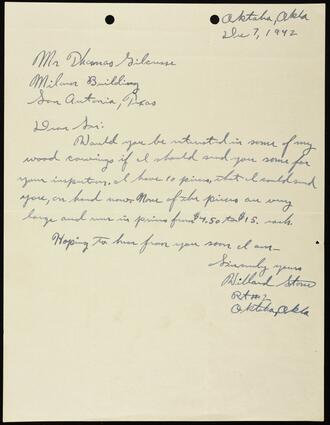 Oktaha, Okla
Dec 7, 1942
Mr Thomas Gilcrease
Milam Building
San Antonio, Texas
Dear Sir:
Would you be interested in some of my
wood carvings if I should send you some for
your inspection, I have 10 pieces, that I could send
you, on hand now. None of the pieces are very
large and run in prices from $4.50 to $15. each.
Hoping to hear from you soon I am-
Sincerely yours
Willard Stone
Rt #2
Oktaha, Okla